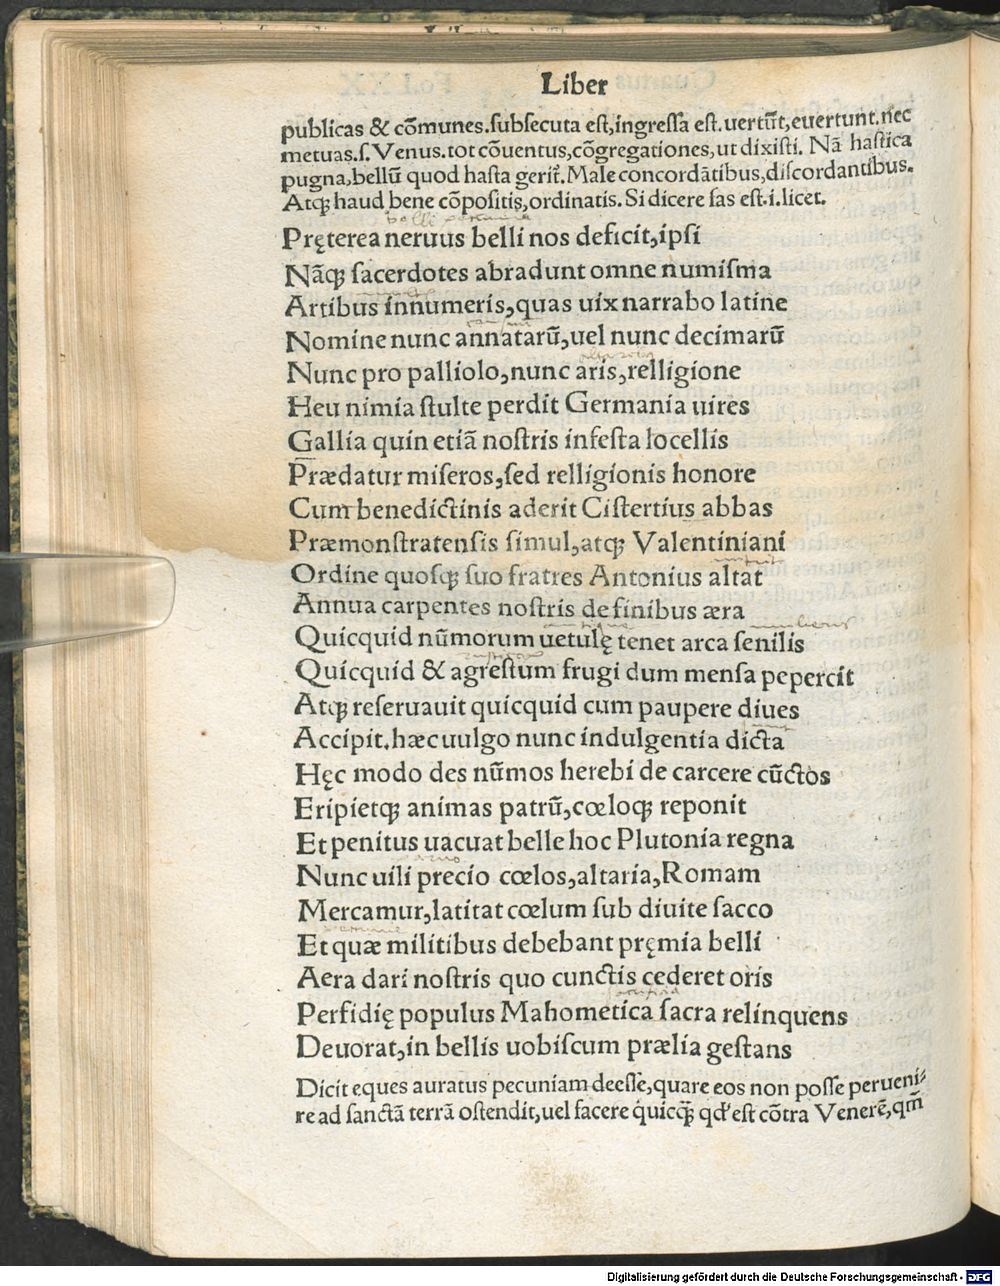 Liber
publicas & cõmunes.ſubſecuta eſt,ingreſſa eſt.uertũt,euertunt.nec
metuas.ſ.Venus.tot cõuentus,cõgregationes,ut dixiſti. Nã haſtica
pugna,bellũ quod haſta gerit̃.Male concordãtibus,diſcordantibus.
Atqꝫ haud bene cõpoſitis,ordinatis. Si dicere fas eſt.i.licet.
Pręterea neruus belli nos deficit,ipſi
Nãqꝫ ſacerdotes abradunt omne numiſma
Artibus innumeris,quas uix narrabo latine
Nomine nunc annatarũ,uel nunc decimarũ
Nunc pro palliolo,nunc aris,relligione
Heu nimia ſtulte perdit Germania uires
Gallia quin etiã noſtris infeſta locellis
Prædatur miſeros,ſed relligionis honore
Cum benedictinis aderit Ciſtertius abbas
Præmonſtratenſis ſimul,atqꝫ Valentiniani
Ordine quoſqꝫ ſuo fratres Antonius altat
Annua carpentes noſtris de finibus æra
Quicquid nũmorum uetulę tenet arca ſenilis
Quicquid & agreſtum frugi dum menſa pepercit
Atqꝫ reſeruauit quicquid cum paupere diues
Accipit.hæc uulgo nunc indulgentia dicta
Hęc modo des nũmos herebi de carcere cũctos
Eripietqꝫ animas patrũ,cœloqꝫ reponit
Et penitus uacuat belle hoc Plutonia regna
Nunc uili precio cœlos,altaria,Romam
Mercamur,latitat cœlum ſub diuite ſacco
Et quæ militibus debebant pręmia belli
Aera dari noſtris quo cunctis cederet oris
Perfidię populus Mahometica ſacra relinquens
Deuorat,in bellis uobiſcum prælia geſtans
Dicit eques auratus pecuniam deeſſe,quare eos non poſſe perueni⸗
re ad ſanctã terrã oſtendit,uel facere quicqꝫ̃ qd' eſt cõtra Venerẽ,qm̃
Digitalisierung gefördert durch die Deutsche Forschungsgemeinschaft - DFG